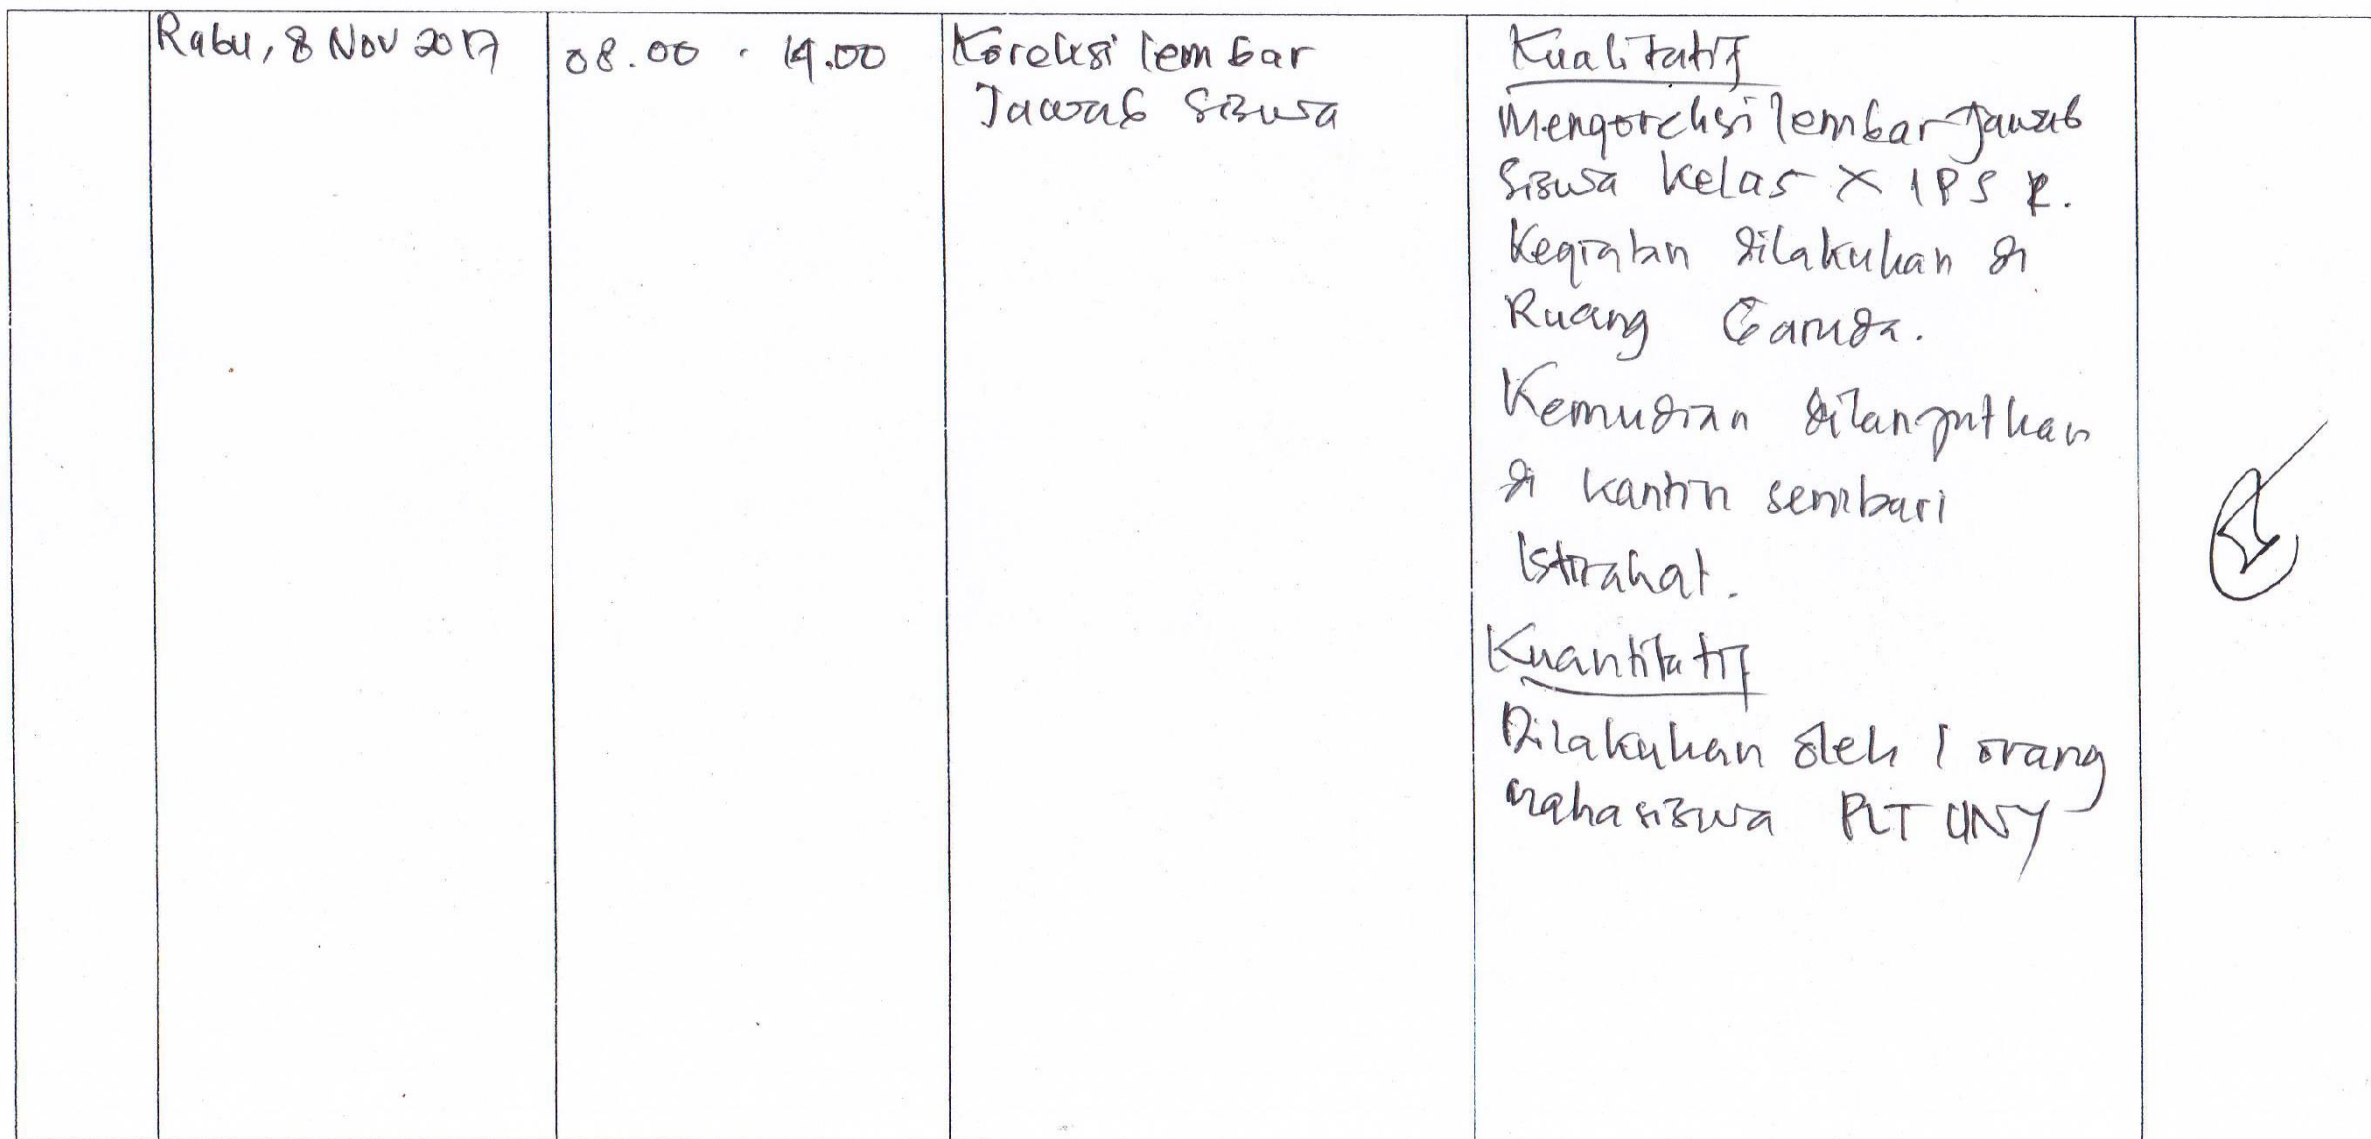 Rabu, 8 Nov 2017
08.00 - 14.00
Koreksi lembar
Jawab Siswa
Kualitatif
Mengoreksi lembar Jawab
Siswa kelas X IPS
Kegiatan dilakukan di
Ruang Garuda.
Kemudian dilanjutkan
di kantin sembari
Istirahat.
Kuantitatif
Dilakukan oleh 1 orang
mahasiswa PLT UNY